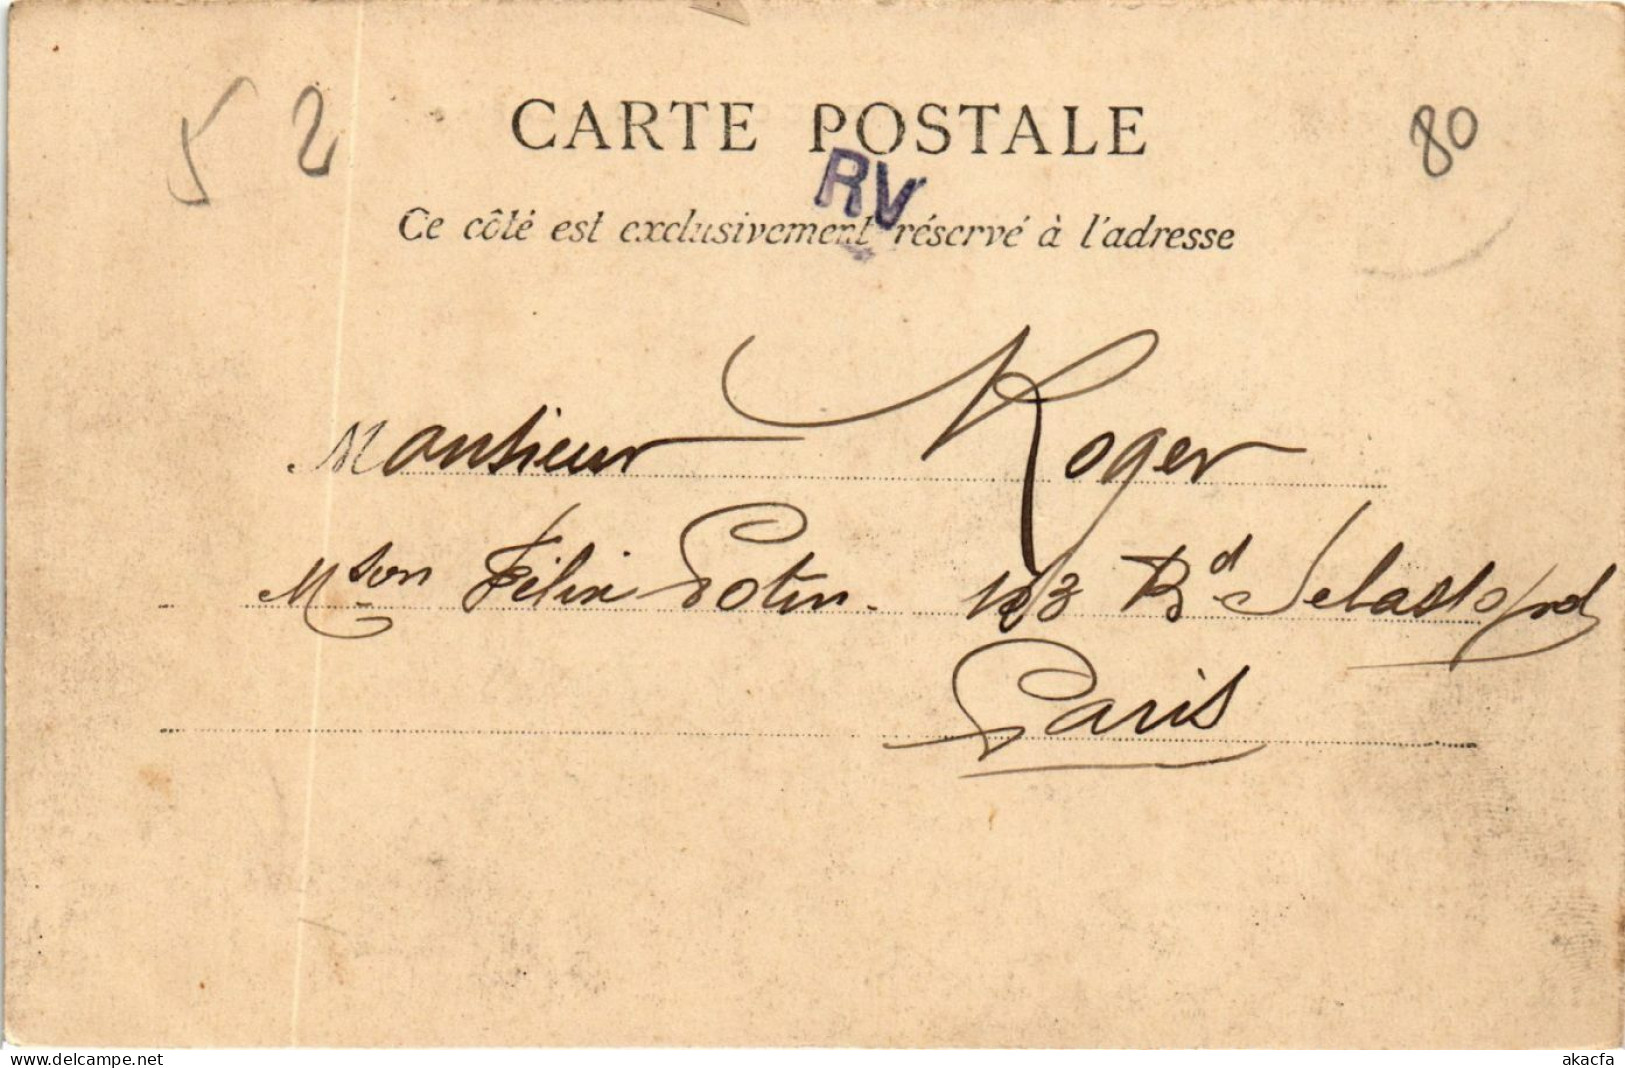 52
80
CARTE POSTALE
RV
Ce côté est exclusivement réservé à l'adresse
Monsieur Roger
Mson Félix Potin. 103 Bd Sebastopol
Paris
www.delcampe.net
akacfa